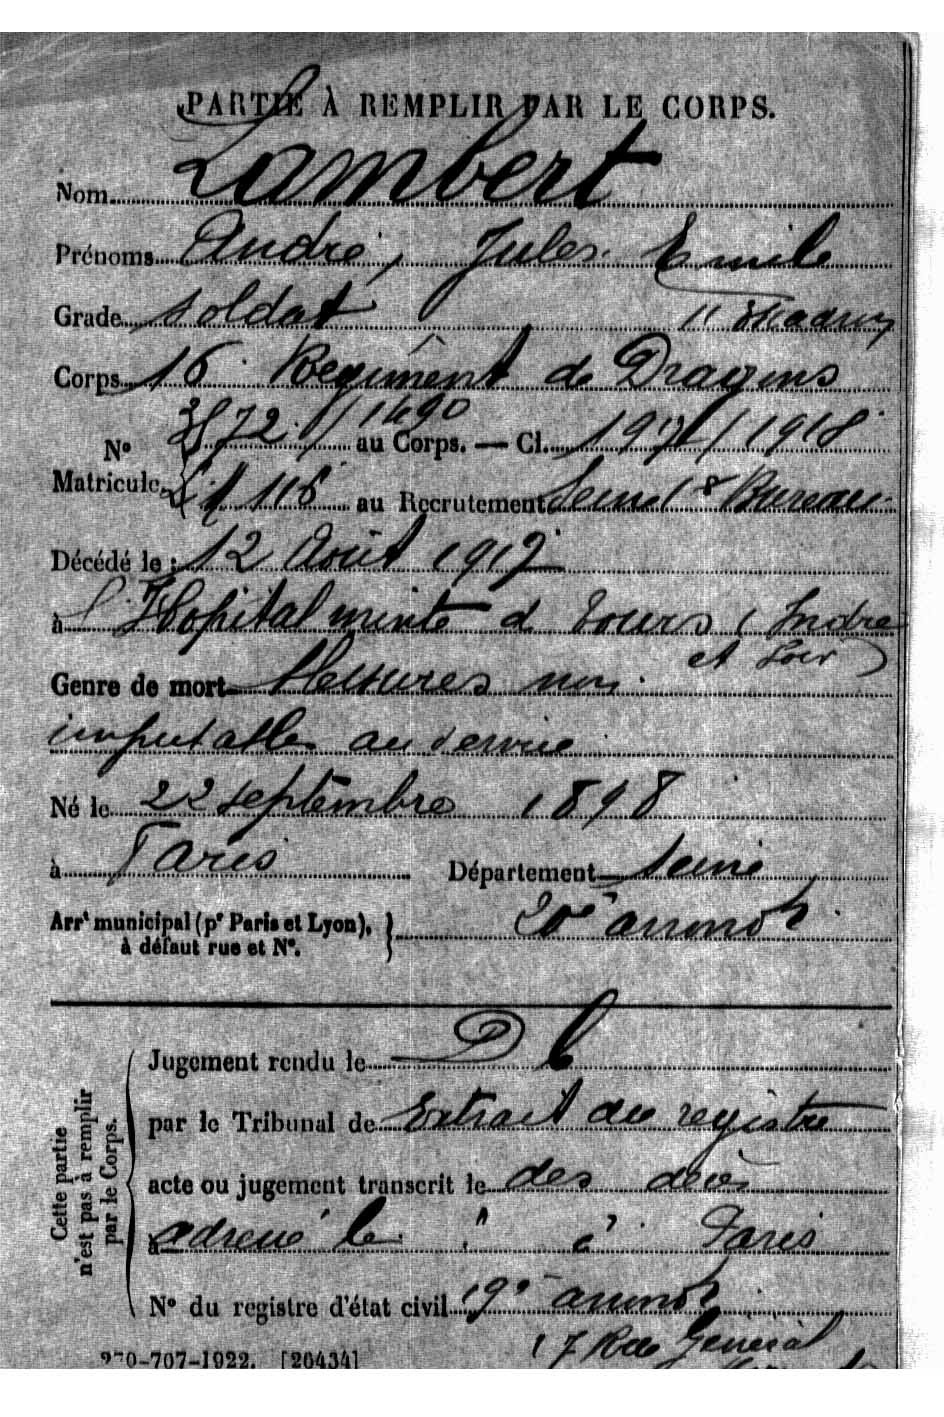 PARTIE À REMPLIR PAR LE CORPS.
Nom Lambert
Prénoms André, Jules Emile
Grade soldat 11 Escadron
Corps 16 Régiment de Dragons
N° 3572 / 1490 au Corps. — Cl. 1917 / 1918
Matricule 116 au Recrutement Seine 8 Bureau
Décédé le : 12 Août 1917
à l'Hopital mixte de Tours (Indre
et Loir)
Genre de mort Blessures non
imputables au service
Né le 22 septembre 1898
à Paris Département Seine
Arrt municipal (pr Paris et Lyon), 20e arrondt
à défaut rue et N°.
Cette partie n'est pas à remplir par le Corps.
Jugement rendu le
par le Tribunal de Extrait du registre
acte ou jugement transcrit le des décès
à adressé le " à Paris
N° du registre d'état civil 19e arrondt
17 Rue Général
270-707-1922. [20434]